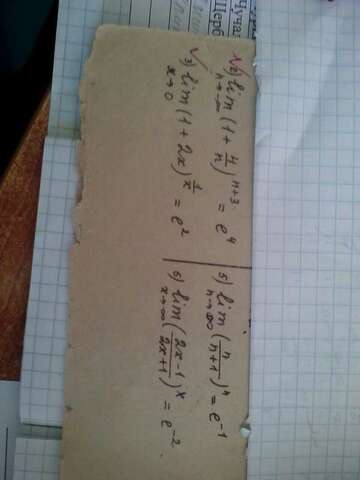 2) lim n→∞ (1 + 4/n)^(n+3) = e^4
3) lim x→0 (1 + 2x)^(1/x) = e^2
5) lim n→∞ (n/(n+1))^n = e^(-1)
6) lim x→∞ ((2x-1)/(2x+1))^x = e^(-2)
Щерб